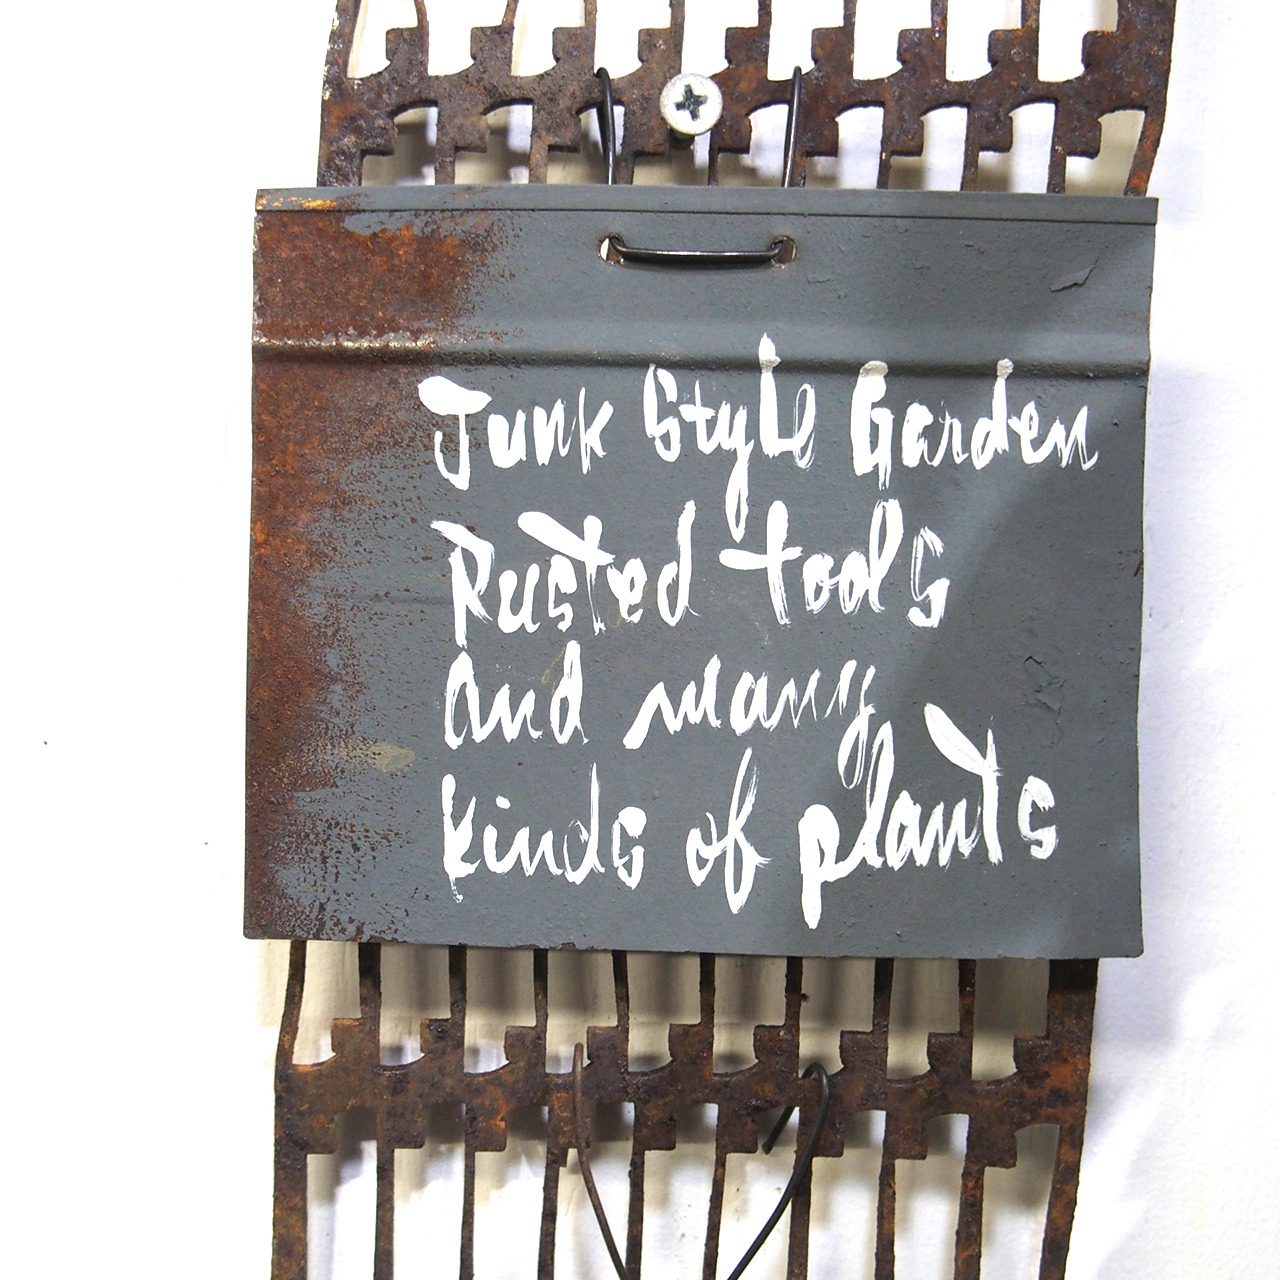 Junk Style Garden
Rusted tools
and many
kinds of plants